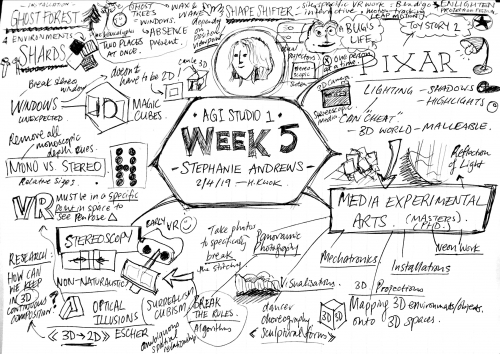 INSTALLATION -
GHOST FOREST
4 ENVIRONMENTS
SHARDS
GHOST
TREES
WINDOWS.
TWO PLACES
AT ONCE.
ABSENCE
PRESENT.
SHAPE SHIFTER
ENLIGHTEN
A BUG'S
LIFE
TOY STORY 2
PIXAR
LIGHTING - SHADOWS -
- HIGHLIGHTS
"CAN CHEAT"
- 3D WORLD - MALLEABLE.
3D Camera
Stereoscopic
Media
Break stereo
window
doesn't
have to be 2D!
WINDOWS
UNEXPECTED
MAGIC
CUBES.
Remove all
monoscopic
depth cues.
MONO VS. STEREO
Relative Sizes
- AGI STUDIO 1 -
WEEK 5
- STEPHANIE ANDREWS -
2/4/19 - H.KWOK
VR MUST BE IN A specific
point in space to
see Penrose
Reflection
of Light
MEDIA EXPERIMENTAL
ARTS. (MASTERS).
(PHD.)
Neon Work
Mechatronics
Installations
3D Projections
Mapping 3D environments/objects
onto 3D spaces.
3D
EARLY VR
STEREOSCOPY
NON-NATURALISTIC
Take photos
to specifically
break
the stitching
Panoramic
Photography
Visualisations
dancer
choreography
"Sculptural forms"
RESEARCH:
HOW CAN
WE KEEP
IN 3D
CONTINUOUS
COMPOSITION?
OPTICAL
ILLUSIONS
SURREALISM
CUBISM
BREAK
THE RULES.
Algorithms
3D → 2D
ESCHER
ambiguous
spatial
relationship